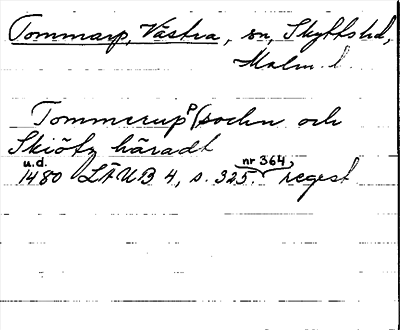 Tommarp, Västra, sn, Skytts hd,
Malm. l
Tommerup P (sochn och
Skiötz häradt
u.d. nr 364,
1480 LÄUB 4, s. 325. regest